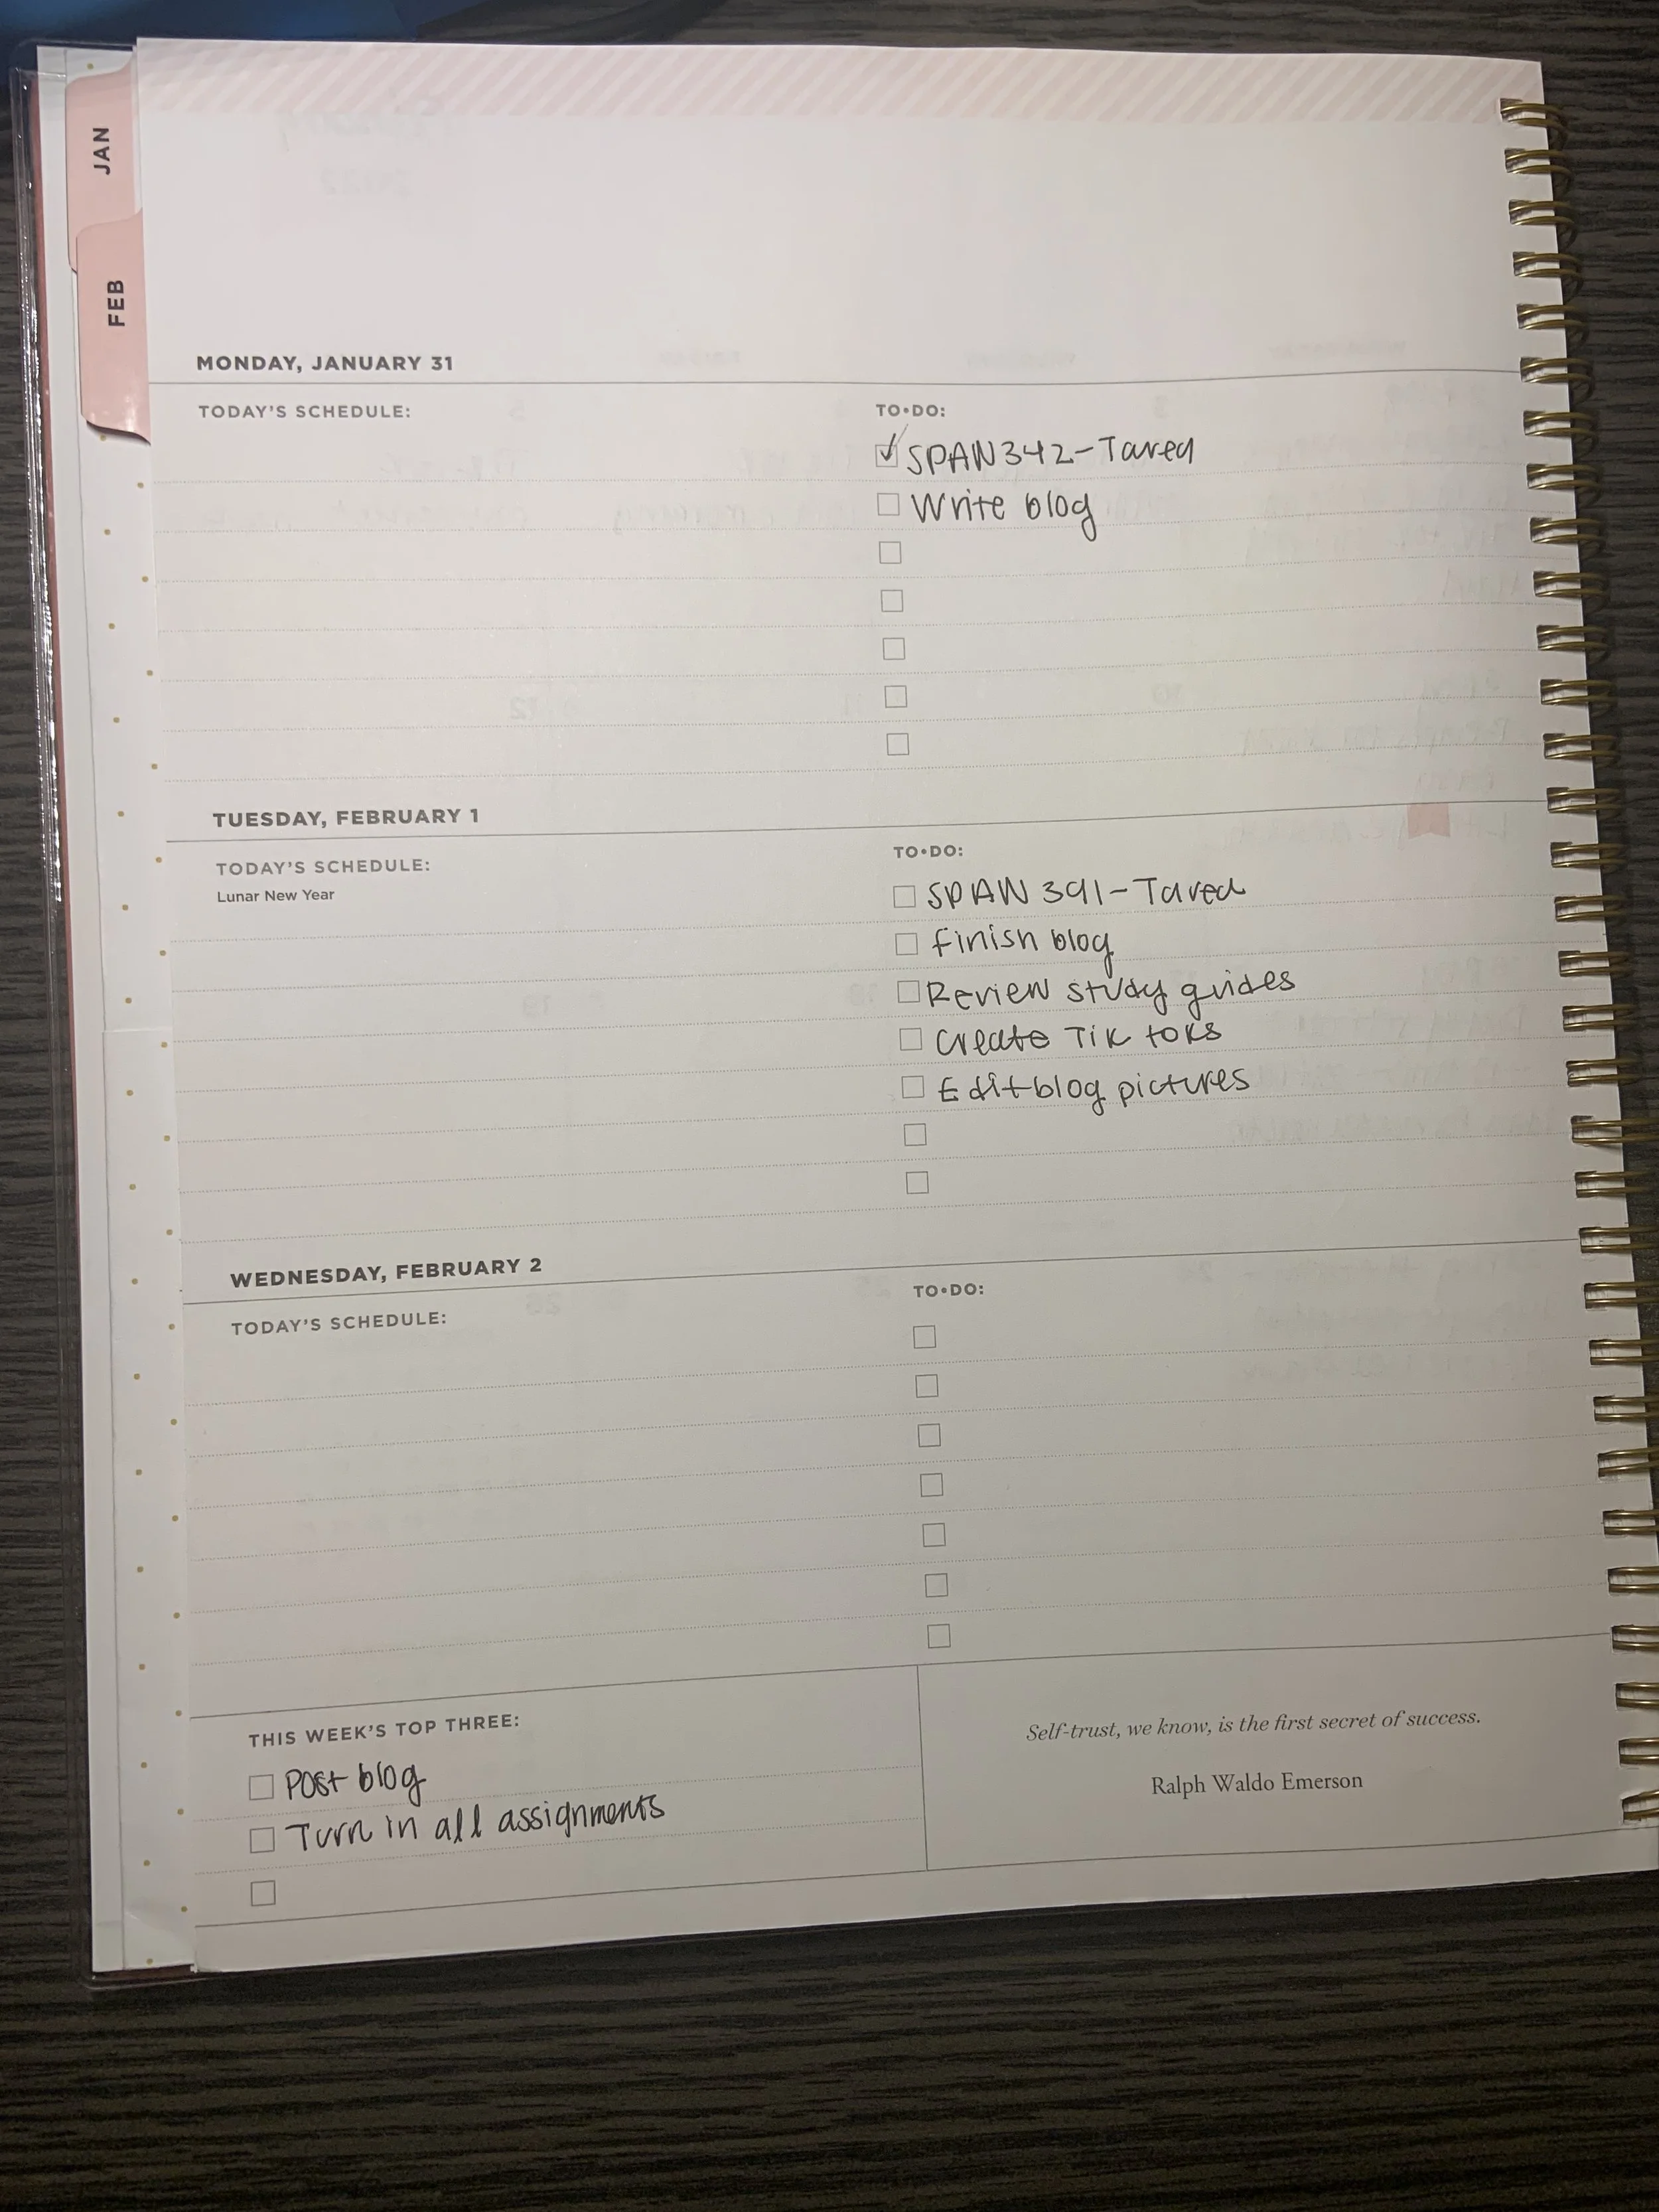 JAN
FEB
MONDAY, JANUARY 31
TODAY'S SCHEDULE:
TO•DO:
SPAN 342-Tarea
Write blog
TUESDAY, FEBRUARY 1
TODAY'S SCHEDULE:
Lunar New Year
TO•DO:
SPAN 391-Tarea
finish blog
Review study guides
Create Tik toks
Edit blog pictures
WEDNESDAY, FEBRUARY 2
TODAY'S SCHEDULE:
TO•DO:
THIS WEEK'S TOP THREE:
Post blog
Turn in all assignments
Self-trust, we know, is the first secret of success.
Ralph Waldo Emerson